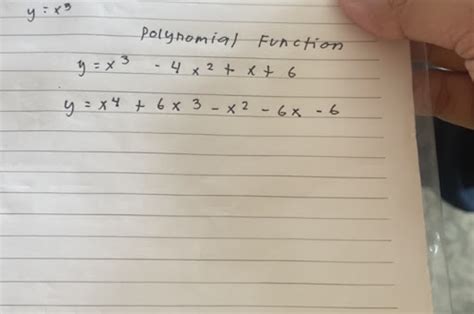 y = x³
Polynomial Function
y = x³ - 4x² + x + 6
y = x⁴ + 6x³ - x² - 6x - 6